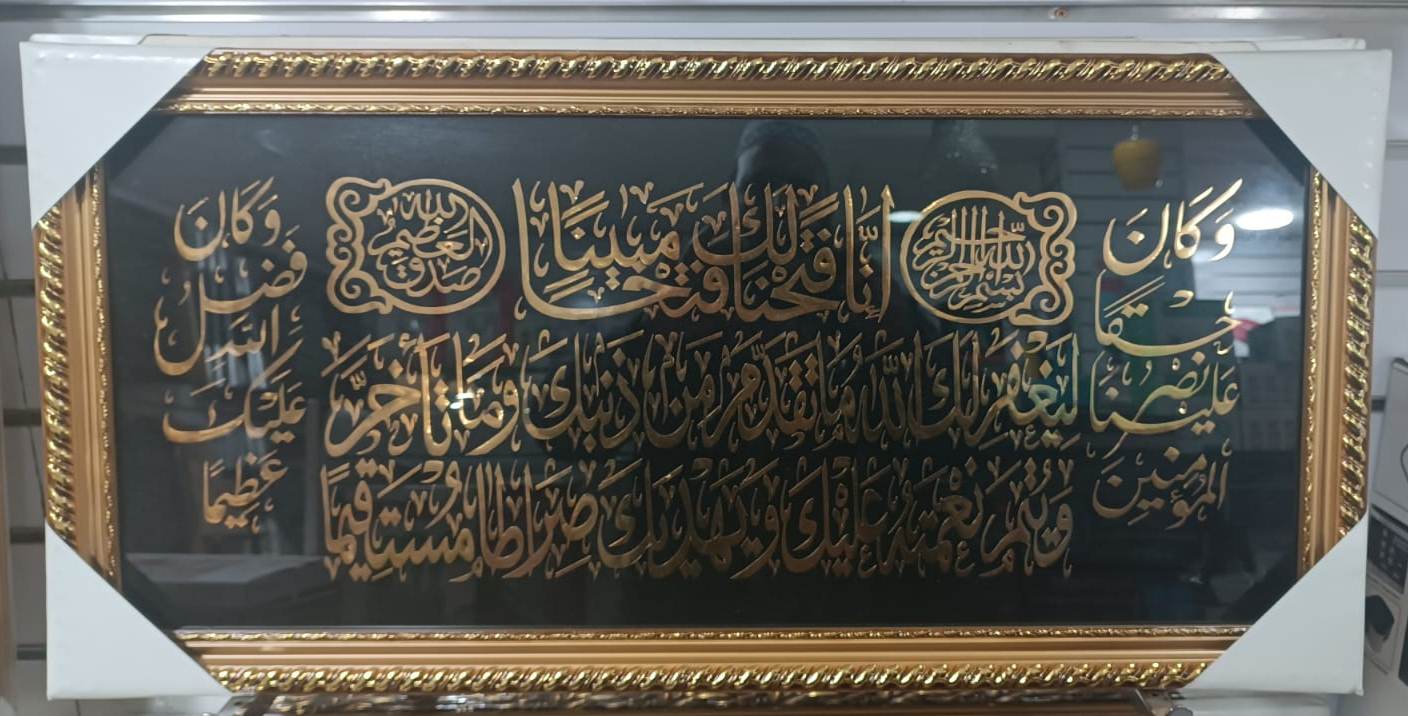 وَكَانَ
حَقًّا
عَلَيْنَا نَصْرُ
الْمُؤْمِنِينَ
بسم الله الرحمن الرحيم
إِنَّا فَتَحْنَا لَكَ فَتْحًا مُبِينًا
صدق الله العظيم
لِيَغْفِرَ لَكَ اللَّهُ مَا تَقَدَّمَ مِنْ ذَنْبِكَ وَمَا تَأَخَّرَ
وَيُتِمَّ نِعْمَتَهُ عَلَيْكَ وَيَهْدِيَكَ صِرَاطًا مُسْتَقِيمًا
وَكَانَ
فَضْلُ
اللَّهِ
عَلَيْكَ
عَظِيمًا